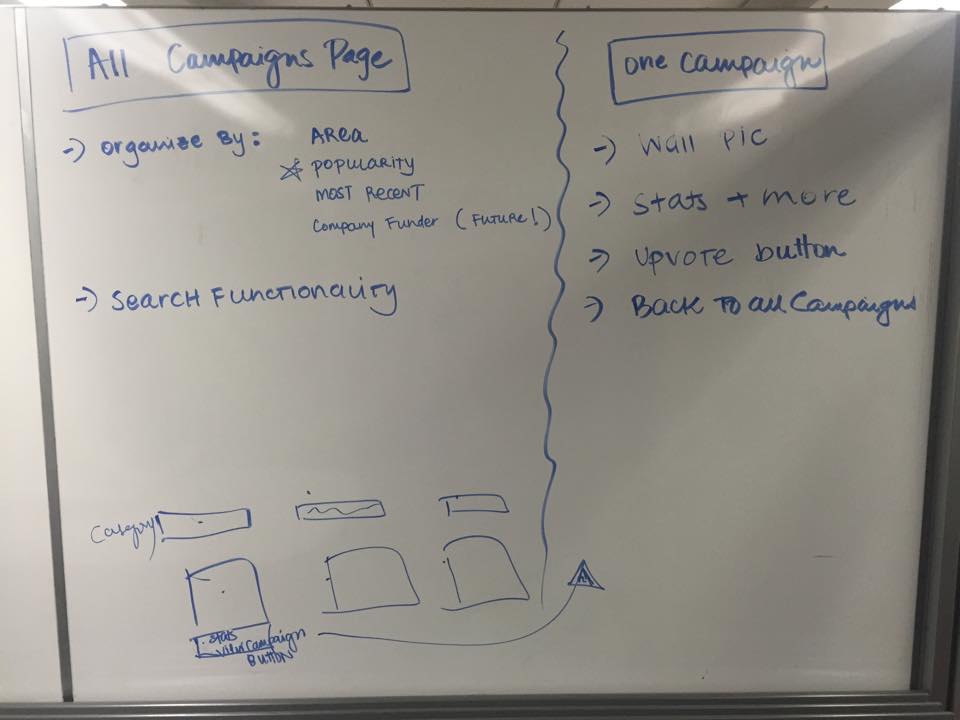 All Campaigns Page
-> Organize By: AREA
POPULARITY
MOST RECENT
Company Funder (FUTURE!)
-> SEARCH FUNCTIONALITY
Category
Stats
View Campaign
Button
one campaign
-> Wall pic
-> Stats + more
-> Upvote button
-> BACK TO all Campaigns